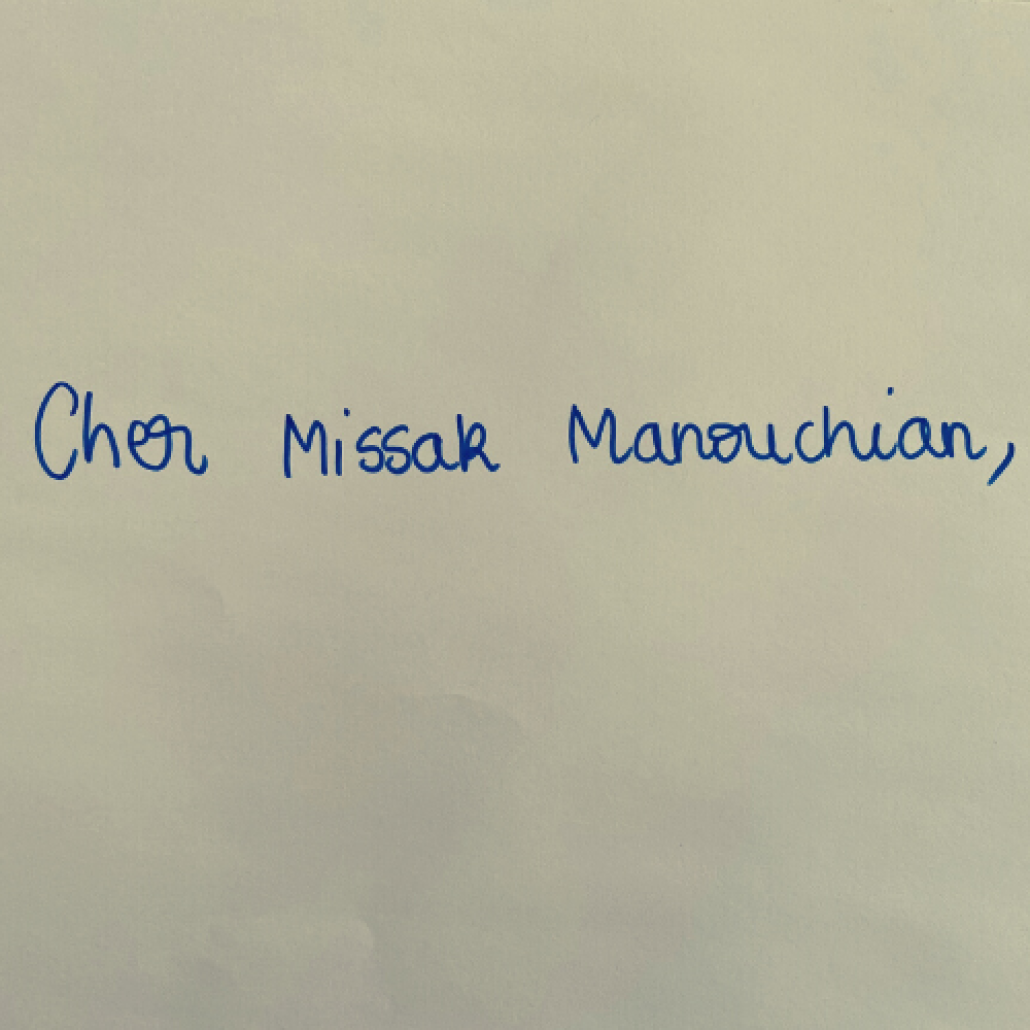 Cher Missak Manouchian,